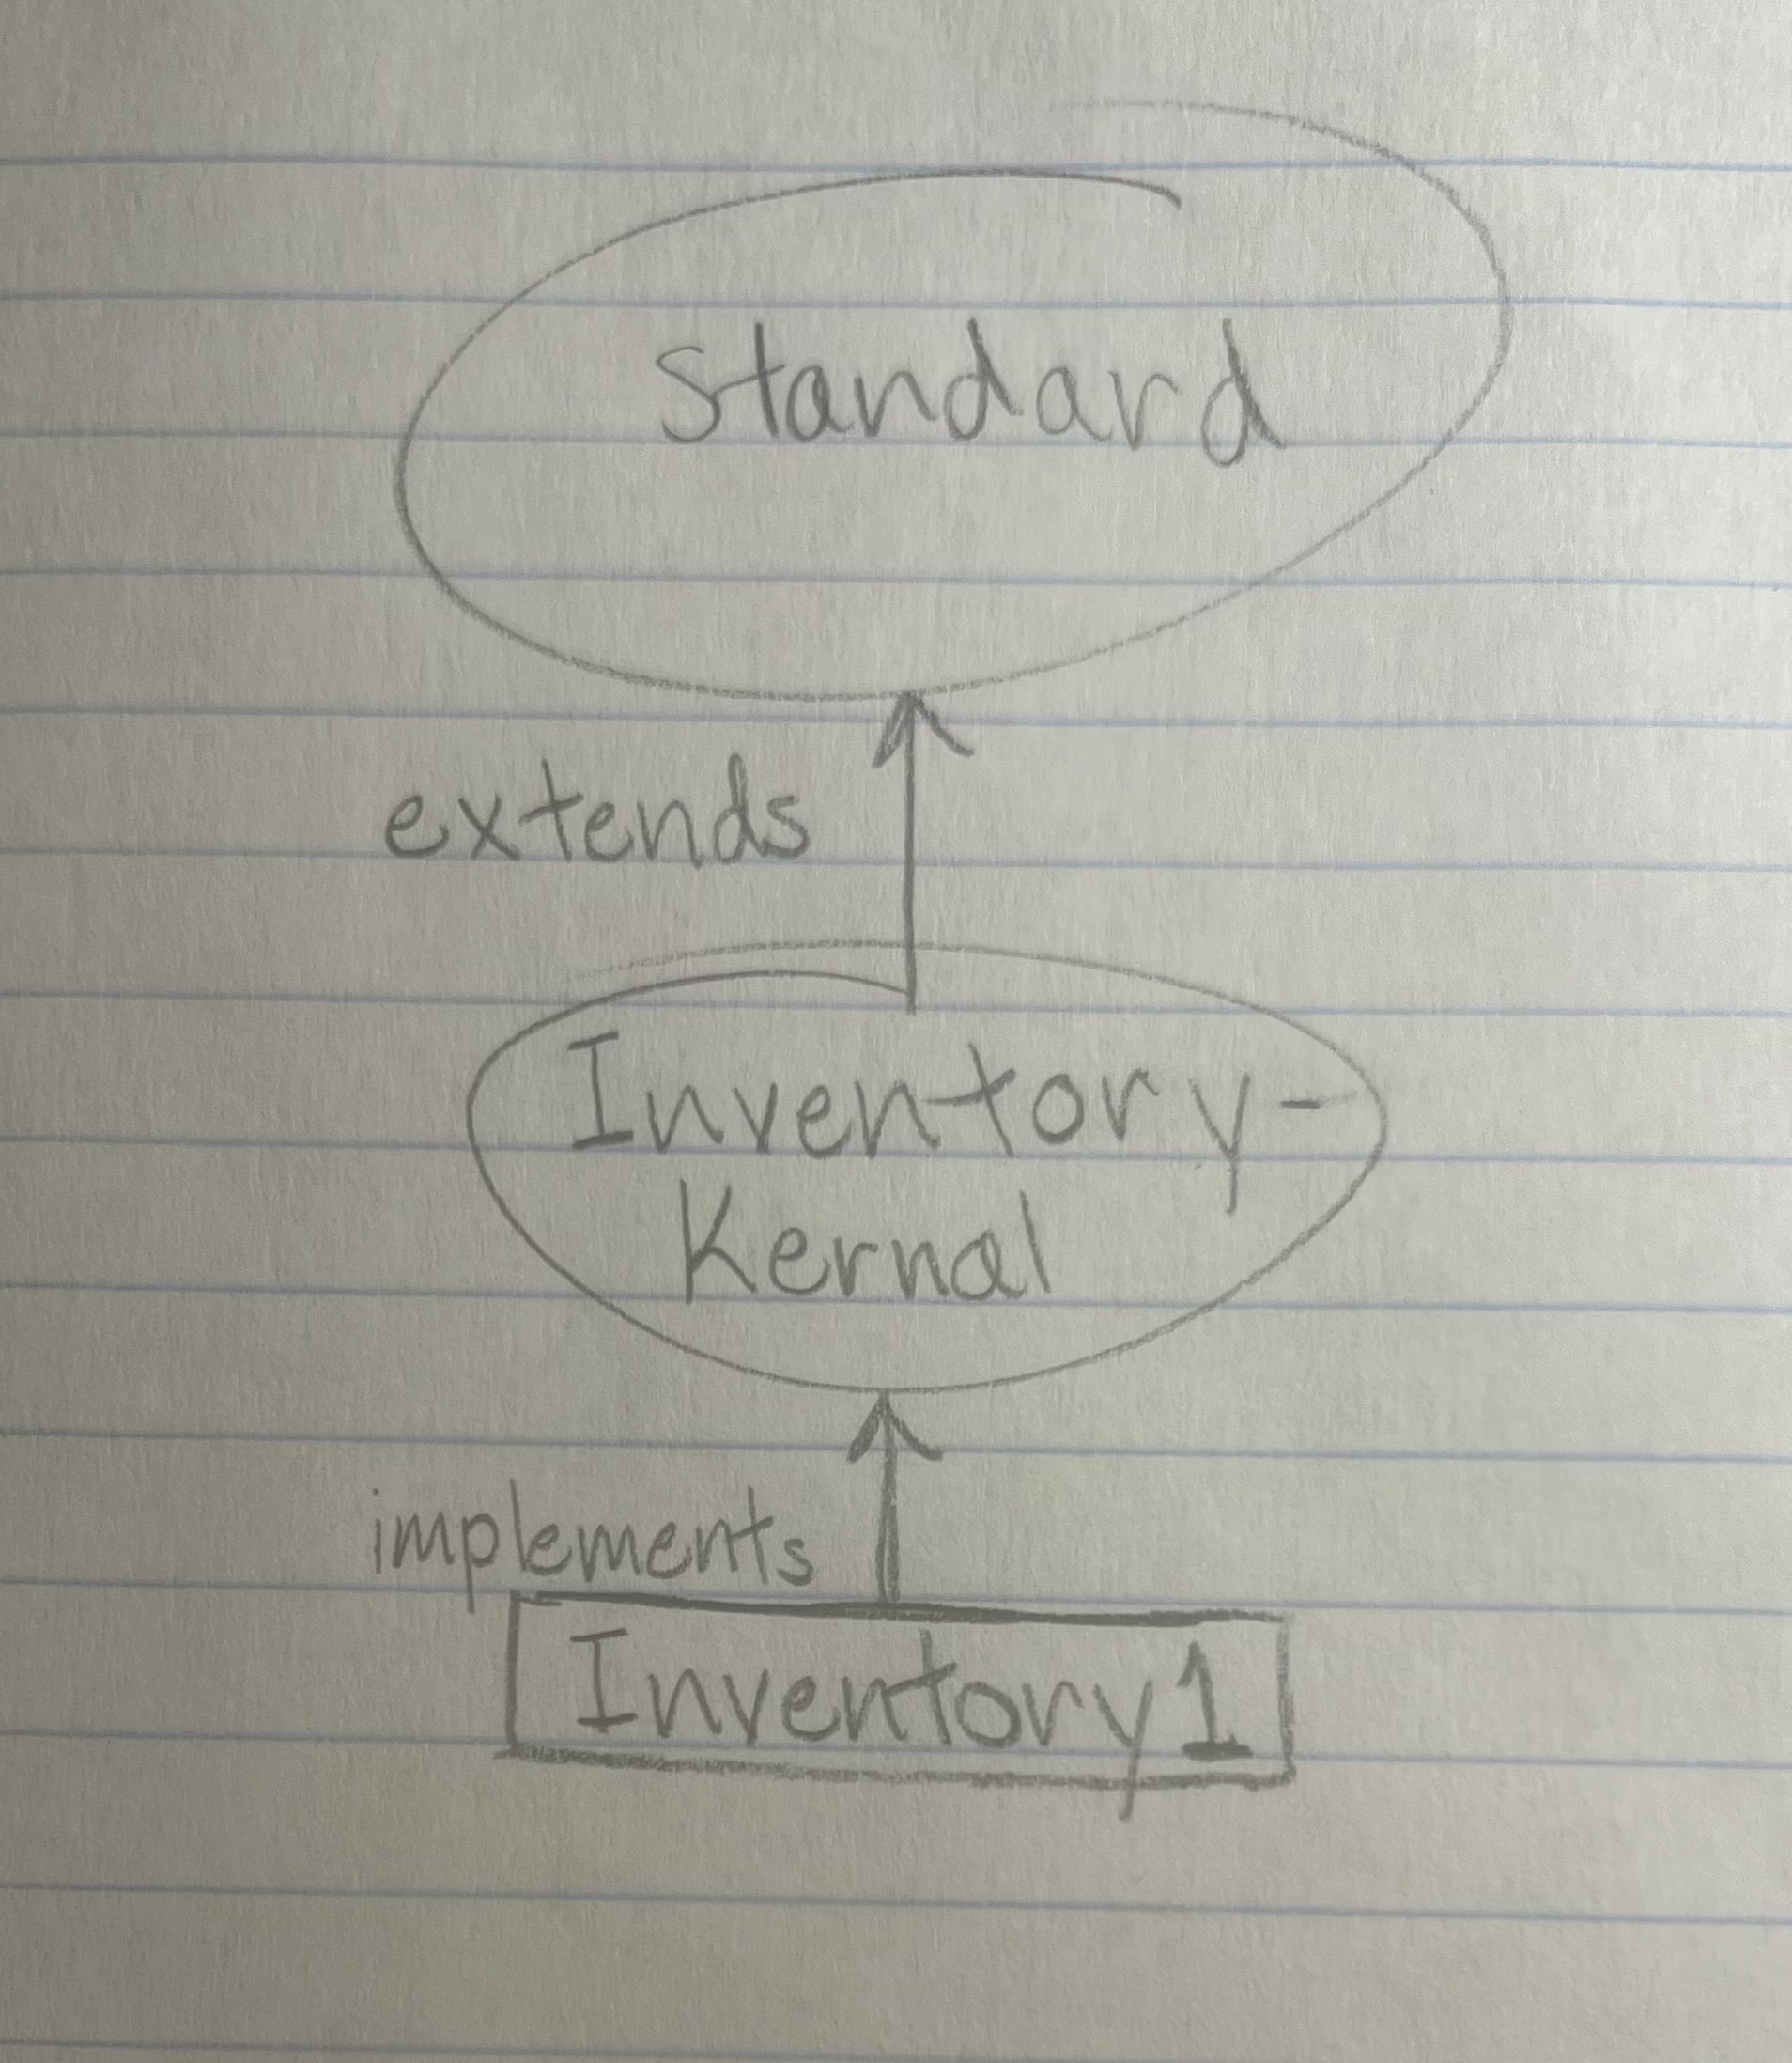 Standard
extends
Inventory-
Kernal
implements
Inventory1